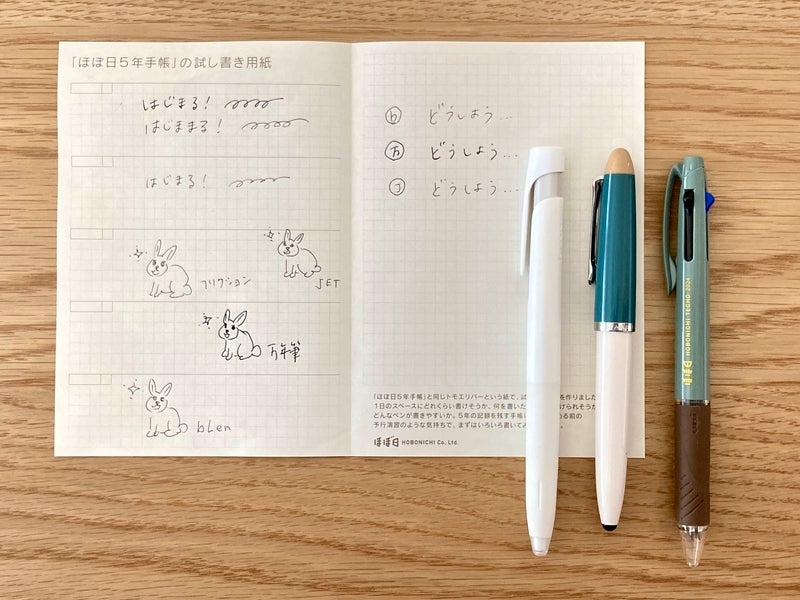 「ほぼ日5年手帳」の試し書き用紙
はじまる!
はじままる!
はじまる!
フリクション
JET
万年筆
bLen
b どうしよう...
万 どうしよう...
J どうしよう...
「ほぼ日5年手帳」と同じトモエリバーという紙で、試
を作りました
1日のスペースにどれくらい書けそうか、何を書いた
けられそうか
どんなペンが書きやすいか。5年の記録を残す手帳
る前の
予行演習のような気持ちで、まずはいろいろ書いてみ
ほぼ日 HOBONICHI Co., Ltd.
ほぼ日 HOBONICHI TECHO 2024